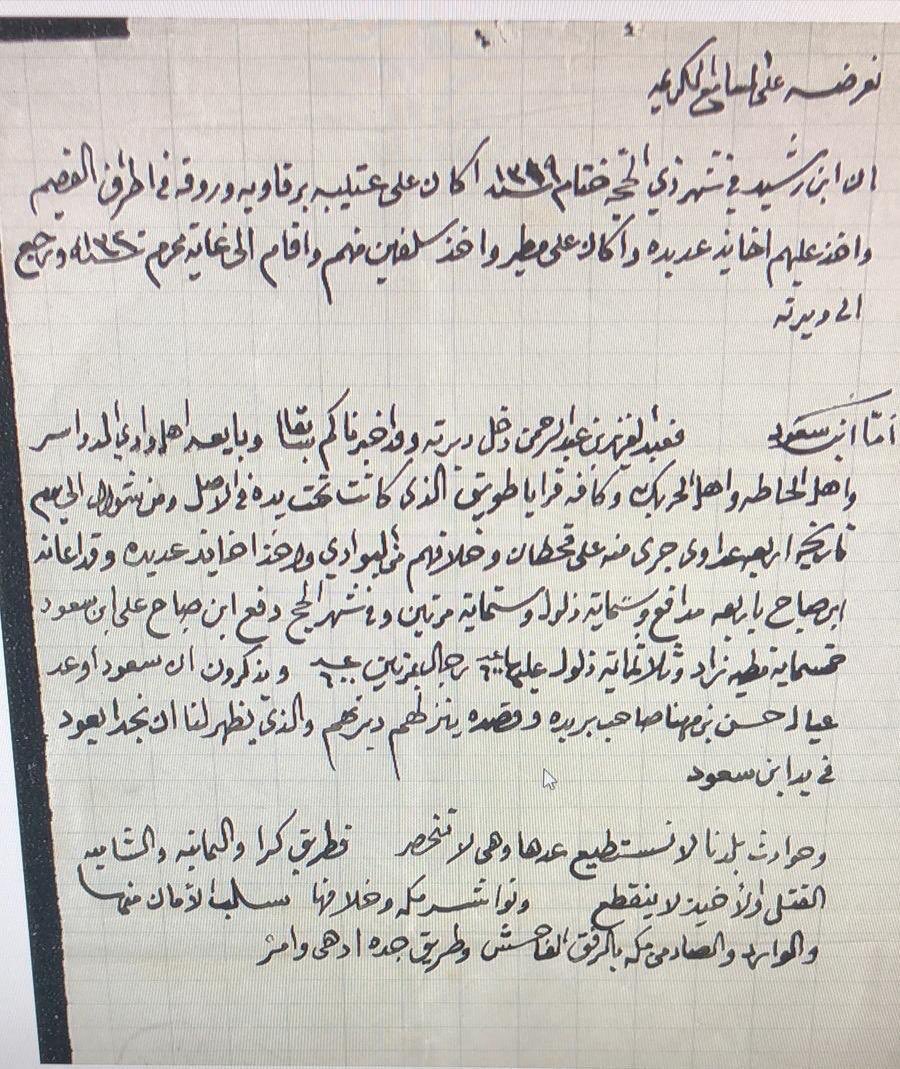 نعرضه على المسامع الكريمه
ان ابن رشيد في شهر ذي الحجه ختام سنه ١٣١٩ اكان على عتيبه برقاويه وروقه في اطراف القصيم
واخذ عليهم اخايذ عديده واكان على مطير واخذ سلفين منهم واقام الى غاية محرم سنه ١٣٢٠ ورجع
الى ديرته
أمّا ابن سعود فعبد العزيز بن عبد الرحمن دخل ديرته وقد اخبرناكم سابقا وبايعه اهل وادي الدواسر
واهل الحاطه واهل الحريك وكافة قرايا طويق الذي كانت تحت يده في الاصل ومن شوال الى يم
تاريخه اربعه عداوي جرى منه على قحطان وخلافهم من البوادي واخذ اخايذ عديده وقد اعانه
ابن صباح باربعه مدافع وستماية ذلول وستماية مرتين وفي شهر الحج دفع ابن صباح على ابن سعود
خمسماية مطيه زاد وثلاثماية ذلول عليها ٦٠٠ رجال بمرتين ٦٠٠ ويذكرون ان سعود اوعد
عيال حسن بن مهنا صاحب بريده وقصده ينزلهم ديرتهم والذي يظهر لنا ان نجد ايعود
في يد ابن سعود
وحوادث بلدنا لا نستطيع عدها وهي لا تنحصر فطريق كرا واليمانيه والشاميه
القتلى والأخيذ لا ينقطع ونواشر مكه وخلافها سلب الأمان منها
والوارد والصادر من مكه بالرفق الفاحش وطريق جده ادهى وامرّ